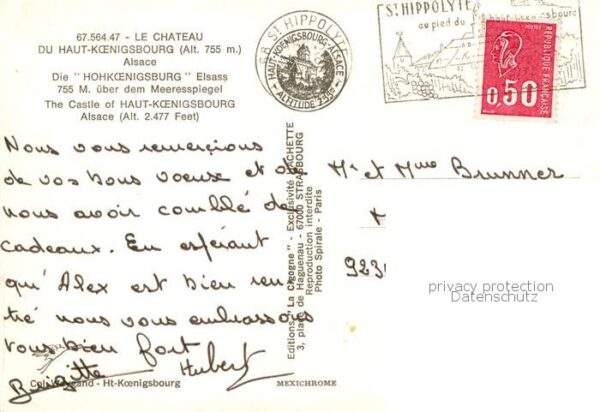 67.564.47 - LE CHATEAU
DU HAUT-KŒNIGSBOURG (Alt. 755 m.)
Alsace
Die "HOHKŒNIGSBURG" Elsass
755 M. über dem Meeresspiegel
The Castle of HAUT-KŒNIGSBOURG
Alsace (Alt. 2.477 Feet)
68 ST HIPPOLYTE
HAUT-KŒNIGSBOURG-ALSACE
ALTITUDE
ST HIPPOLYTE
au pied du Haut-Kœnigsbourg
0,50
REPUBLIQUE FRANÇAISE
Nous vous remercions
de vos bons voeux et de
nous avoir comblé de
cadeaux. En espérant
qu'Alex est bien ren
tré nous vous embrassons
tous bien fort
Brigitte Hubert
Mr et Mme Brunner
923
Editions "La Cigogne" - Exclusivité HACHETTE
3, place de Haguenau - 67000 STRASBOURG
Reproduction interdite
Photo Spirale - Paris
privacy protection
Datenschutz
Ht-Kœnigsbourg
MEXICHROME